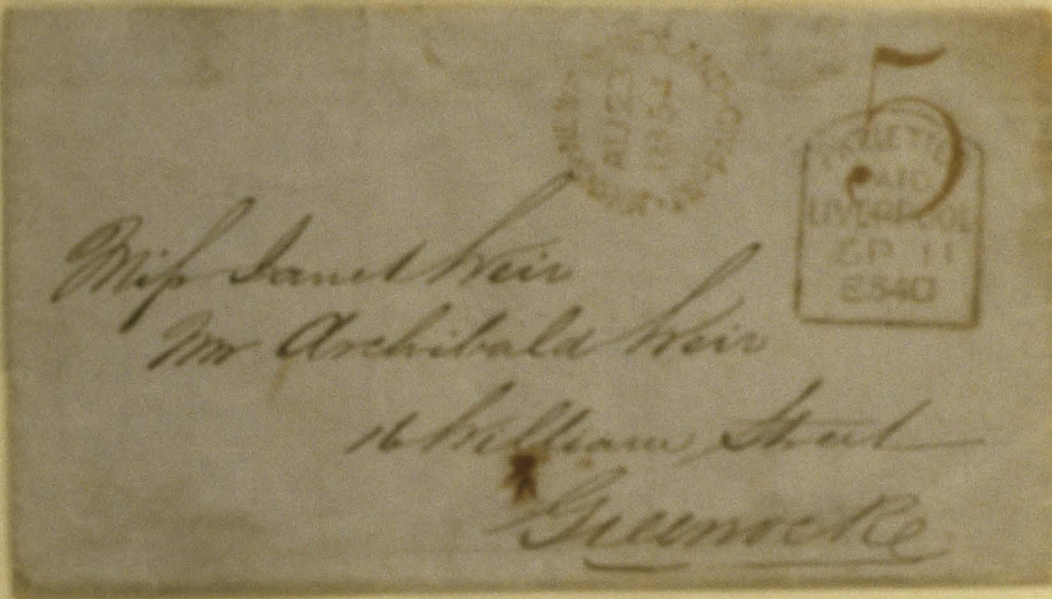 5
AU 23
1854
PAID
LIVERPOOL
SP 11
Miss Janet Weir
Mr Archibald Weir
16 William Street
Greenock